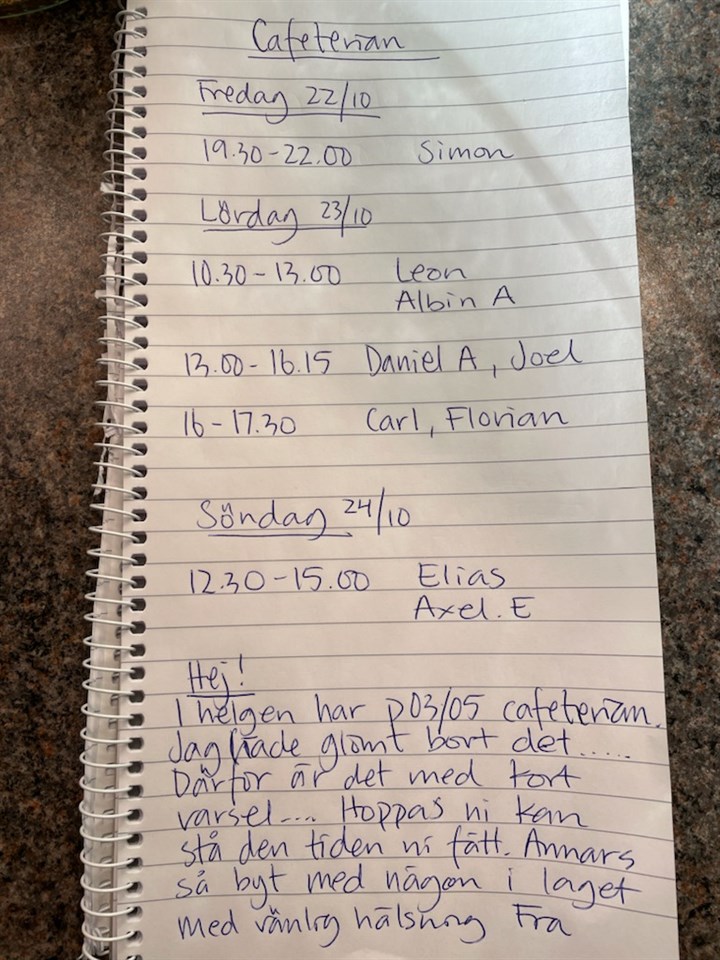 Cafeterian
Fredag 22/10
19.30-22.00 Simon
Lördag 23/10
10.30-13.00 Leon
Albin A
13.00-16.15 Daniel A, Joel
16-17.30 Carl, Florian
Söndag 24/10
12.30-15.00 Elias
Axel.E
Hej!
I helgen har p03/05 cafeterian.
Jag hade glömt bort det.....
Därför är det med kort
varsel... Hoppas ni kan
stå den tiden ni fått. Annars
så byt med någon i laget
Med vänlig hälsning Fra